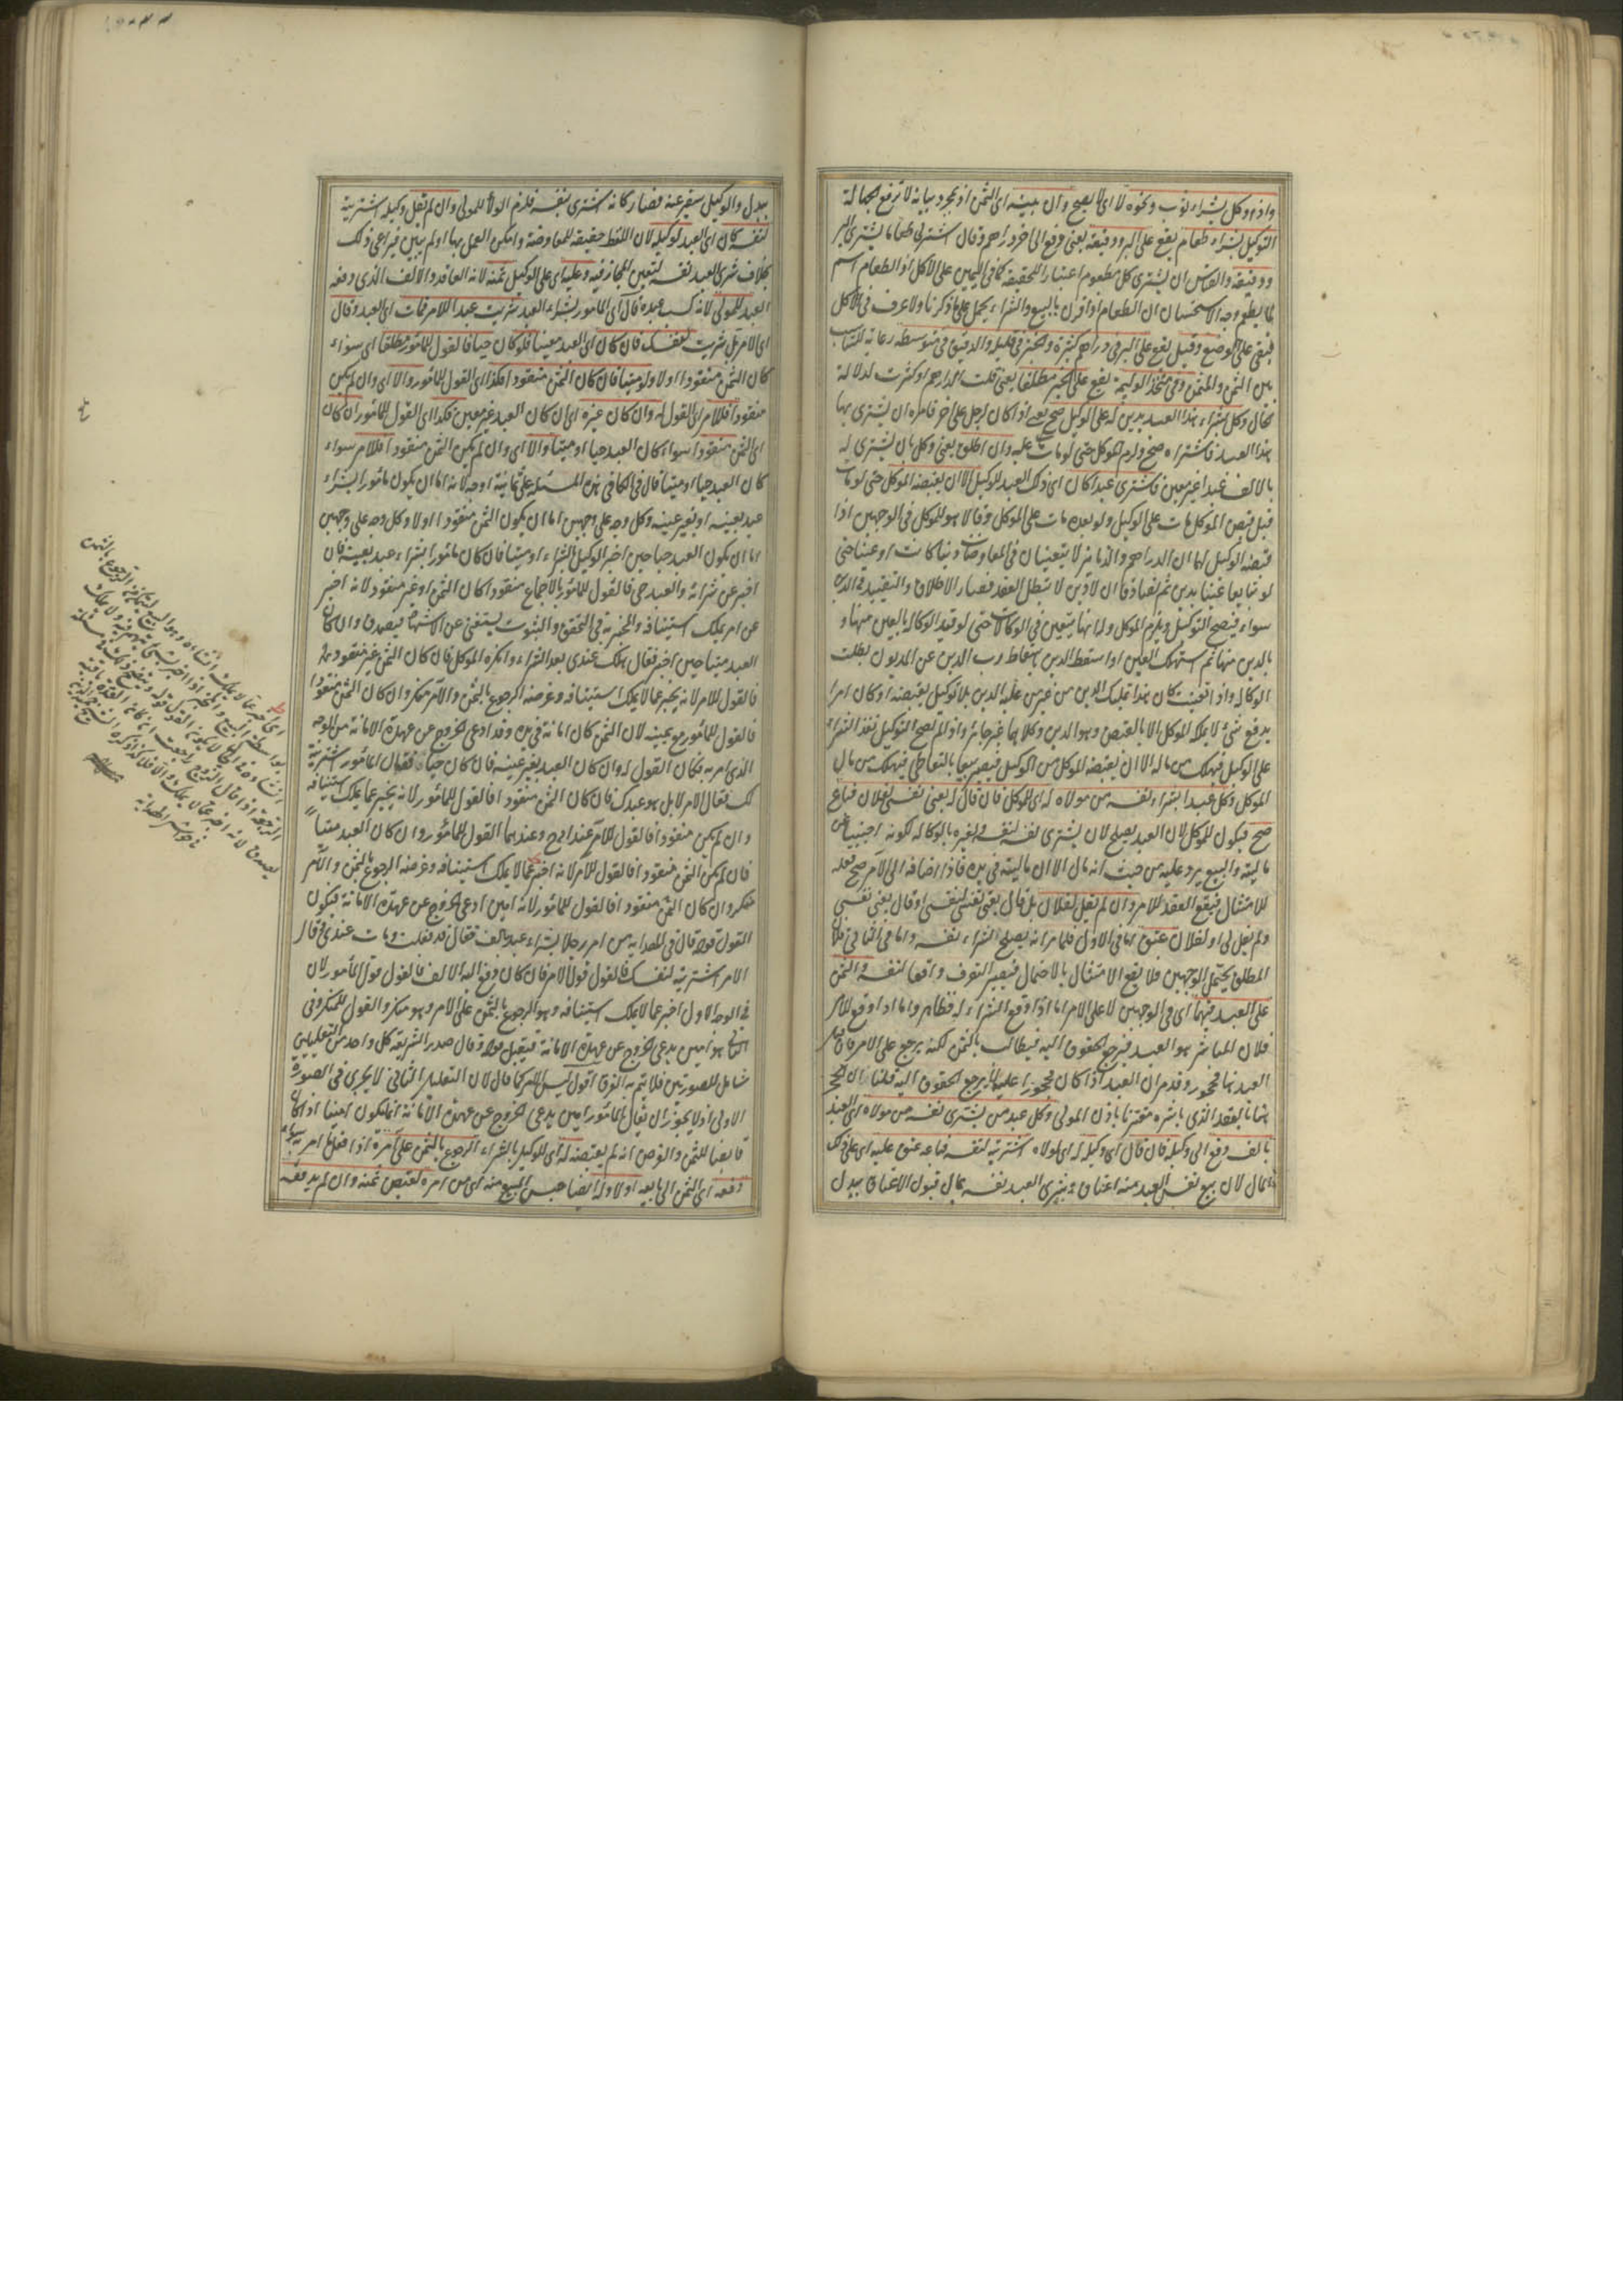 واذا وكل بشراء ثوب ونحوه لا اى لا يصح وان بينه اى الثمن اذ بمجرد بيانه لا ترفع الجهالة
التوكيل بشراء طعام يقع على البر ودقيقه يعنى دفع الى اخر دراهم وقال اشتر لى طعاما يشترى البر
ودقيقه والقياس ان يشترى كل مطعوم اعتبارا للحقيقة كما فى اليمين على الاكل اذ الطعام اسم
لما يطعم وجه الاستحسان ان الطعام اذا قرن بالبيع والشراء يحمل على ما ذكرنا ولا عرف فى الاكل
فبقى على الوضع وقيل يقع على البر فى دراهم كثيرة والخبز فى قليلة والدقيق فى متوسطة رعاية للتناسب
بين الثمن والمثمن وفى متخذ الوليمة يقع على الخبز مطلقا يعنى قلت الدراهم او كثرت لدلالة
الحال وكل بشراء هذا العبد بدين له على الوكيل صح يعنى اذا كان لرجل على اخر فامره ان يشترى بها
هذا العبد فاشتراه صح ولزم الموكل حتى لو مات مات عليه وان اطلق يعنى وكل بان يشترى له
بالالف عبدا غير معين فاشترى عبدا كان اى ذلك العبد للوكيل الا ان يقبضه الموكل حتى لو مات
قبل قبض الموكل مات على الوكيل ولو بعده مات على الموكل وقالا هو للموكل فى الوجهين اذا
قبضه الوكيل لهما ان الدراهم والدنانير لا يتعينان فى المعاوضات دينا كانت او عينا حتى
لو تبايعا عينا بدين ثم تصادقا ان لا دين لا تبطل العقد فصار الاطلاق والتقييد فى الدين
سواء فيصح التوكيل ويلزم الموكل وله انها يتعين فى الوكالات حتى لو قيد الوكالة بالعين منها و
بالدين منها ثم استهلك العين او اسقط الدين اسقاط رب الدين عن المديون بطلت
الوكالة واذا تعينت كان هذا تمليك الدين من غير من عليه الدين بلا توكيل بقبضه او كان امرا
بدفع شئ لا يملكه الموكل الا بالقبض وهو الدين وكلاهما غير جائز واذا لم يصح التوكيل نفذ الشراء
على الوكيل فيهلك من ماله الا ان يقبضه الموكل من الوكيل فيصير بيعا بالتعاطى فيهلك من مال
الموكل وكل عبدا بشراء نفسه من مولاه له اى للموكل فان قال له بعنى نفسى لفلان فباع
صح فيكون للموكل لان العبد يصلح لان يشترى نفسه لنفسه ولغيره بالوكالة لكونه اجنبيا عن
ماليته والبيع يرد عليه من حيث انه مال الا ان ماليته فى يده فاذا اضافه الى الآمر صح فعله
للامتثال فيقع العقد للامر وان لم يقل لفلان بل قال بعنى نفسى لنفسى او قال بعنى نفسى
ولم يقل لى او لفلان عتق اما فى الاول فلما مر انه يصلح لشراء نفسه واما فى الثانى فلان
المطلق يحتمل الوجهين فلا يقع الامتثال بالاحتمال فيصير التصرف واقعا لنفسه والثمن
على العبد فيهما اى فى الوجهين لا على الامر اما اذا وقع الشراء له فظاهر واما اذا وقع للآمر
فلان المباشر هو العبد فيرجع الحقوق اليه فيطالب بالثمن لكنه يرجع على الامر فان قيل
العبد هنا محجور وقد مر ان العبد اذا كان محجورا عليه لا يرجع الحقوق اليه قلنا ان الحجر
هنا بالعقد الذى باشره مقترنا باذن المولى وكل عبد من يشترى نفسه من مولاه اى العبد
بالف دفع الى وكيله فان قال اى وكيله له اى لمولاه اشتريته لنفسه فباعه عتق عليه اى على ذلك
المال لان بيع نفس العبد منه اعتاق وشرى العبد نفسه بمال قبول الاعتاق ببدل
ببدل والوكيل سفير عنه فصار كانه اشترى بنفسه فلزم الولاء للمولى وان لم يقل وكيله اشتريته
لنفسه كان اى العبد لوكيله لان اللفظ حقيقة للمعاوضة وامكن العمل بها اذ لم يبين فيراعى ذلك
بخلاف شرى العبد نفسه لتعين المجاز فيه وعليه اى على الوكيل ثمنه لانه العاقد والالف الذى دفعه
العبد للمولى لانه كسب عبده قال اى المأمور بشراء العبد شريت عبدا للامر فمات اى العبد وقال
اى الامر بل شريت لنفسك فان كان اى العبد معينا فلو كان حيا فالقول للمأمور مطلقا اى سواء
كان الثمن منقودا اولا ولو ميتا فان كان الثمن منقودا فكذا اى القول للمأمور والا اى وان لم يكن
منقودا فللامر اى القول له وان كان غيره اى ان كان العبد غير معين فكذا اى القول للمأمور ان كان
اى الثمن منقودا سواء كان العبد حيا او ميتا والا اى وان لم يكن الثمن منقودا فللامر سواء
كان العبد حيا او ميتا قال فى الكافى هذه المسئلة على ثمانية اوجه لانه اما ان يكون مأمورا بشراء
عبد بعينه او بغير عينه وكل وجه على وجهين اما ان يكون الثمن منقودا اولا وكل وجه على وجهين
اما ان يكون العبد حيا حين اخبر الوكيل بالشراء او ميتا فان كان مأمورا بشراء عبد بعينه فان
اخبر عن شرائه والعبد حى فالقول للمأمور بالاجماع منقودا كان الثمن او غير منقود لانه اخبر
عن امر يملك استينافه والمخبر به فى التحقق والثبوت يستغنى عن الاشهاد فيصدق وان كان
العبد ميتا حين اخبر فقال هلك عندى بعد الشراء وانكره الموكل فان كان الثمن غير منقود
فالقول للامر لانه يخبر عما لا يملك استينافه وغرضه الرجوع بالثمن والآمر منكر وان كان الثمن منقودا
فالقول للمأمور مع يمينه لان الثمن كان امانة فى يده وقد ادعى الخروج عن عهدة الامانة من الوجه
الذى امر به فكان القول له وان كان العبد بغير عينه فان كان حيا فقال المأمور اشتريته
لك فقال الامر لا بل هو عبدك فان كان الثمن منقودا فالقول للمأمور لانه يخبر عما يملك استينافه
وان لم يكن منقودا فالقول للآمر عند ابى ح وعندهما القول للمأمور وان كان العبد ميتا
فان لم يكن الثمن منقودا فالقول للآمر لانه اخبر عما لا يملك استينافه وغرضه الرجوع بالثمن والآمر
منكر وان كان الثمن منقودا فالقول للمأمور لانه امين ادعى الخروج عن عهدة الامانة فيكون
القول قوله قال فى الهداية من امر رجلا بشراء عبد بالف فقال قد فعلت ومات عندى وقال
الامر اشتريته لنفسك فالقول قول الامر فان كان دفع اليه الالف فالقول قول المأمور لان
فى الوجه الاول اخبر عما لا يملك استينافه وهو الرجوع بالثمن على الامر وهو منكر والقول للمنكر وفى
الثانى هو امين يدعى الخروج عن عهدة الامانة فيقبل قوله وقال صدر الشريعة كل واحد من التعليلين
شامل للصورتين فلا يتم به الفرق اقول ليس الامر كما قال لان التعليل الثانى لا يجرى فى الصورة
الاولى اذ لا يجوز ان يقال المأمور امين يدعى الخروج عن عهدة الامانة اذ انما يكون امينا اذا كان
قابضا للثمن والفرض انه لم يقبضه له اى للوكيل بالشراء الرجوع بالثمن على آمره اذا فعل ما امر به سواء
دفعه اى الثمن الى بايعه اولا وله ايضا حبس المبيع منه اى من امره لقبض ثمنه وان لم يدفعه